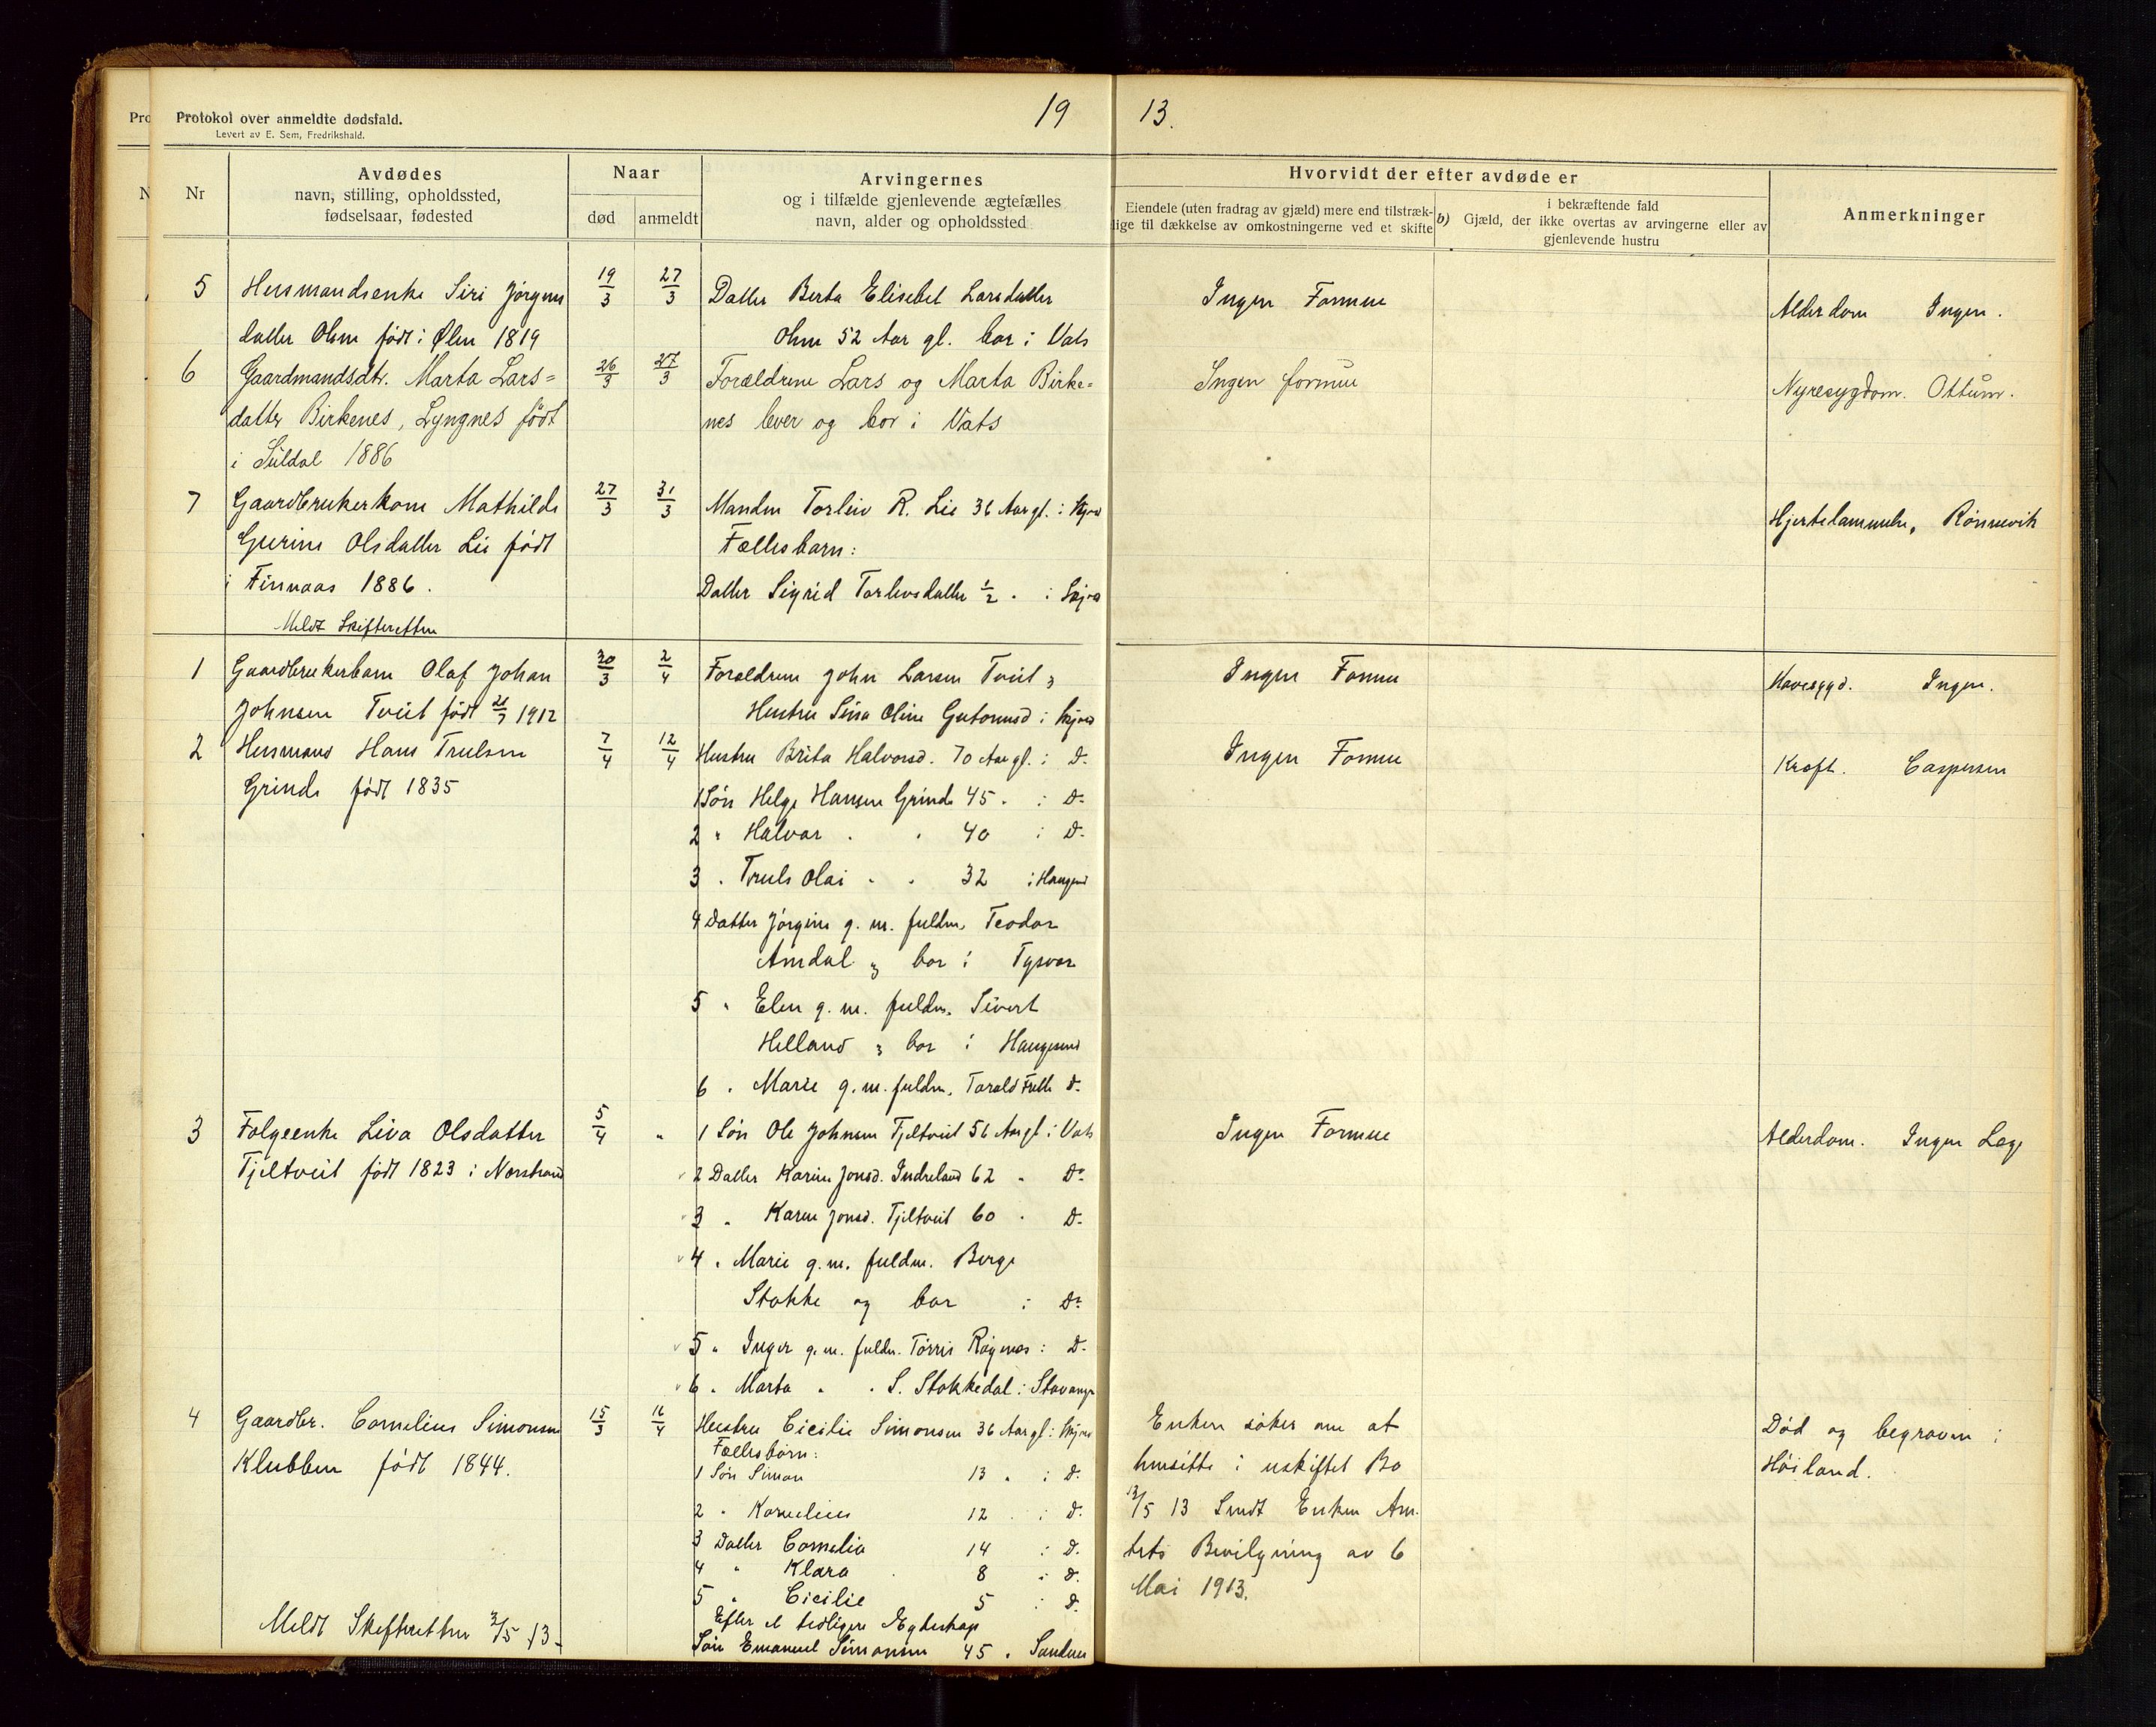 Protokol over anmeldte dødsfald.
Levert av E. Sem, Fredrikshald.
1913.
Nr
Avdødes
navn, stilling, opholdssted,
fødselsaar, fødested
Naar
død
anmeldt
Arvingernes
og i tilfælde gjenlevende ægtefælles
navn, alder og opholdssted
Hvorvidt der efter avdøde er
Eiendele (uten fradrag av gjæld) mere end tilstræk-
lige til dækkelse av omkostningerne ved et skifte
b)
i bekræftende fald
Gjæld, der ikke overtas av arvingerne eller av
gjenlevende hustru
Anmerkninger
5 Husmandsenke Siri Jørgens 19/3 27/3 Datter Berta Elisebet Larsdatter Ingen Formue Alderdom Ingen.
datter Ohm født i Ølen 1819 Ohm 52 Aar gl. bor i Vats
6 Gaardmandsdtr. Marta Lars= 26/3 27/3 Forældrene Lars og Marta Birke= Ingen formue Nyresygdom. Ottum.
datter Birkenes, Lyngnes født nes lever og bor i Vats
i Suldal 1886
7 Gaardbrukerkone Mathilde 27/3 31/3 Manden Torleiv R. Lie 36 Aar gl. i Skjold Hjertelammelse, Rönnevik
Gurine Olsdatter Lie født Fællesbarn:
i Finnaas 1886. Datter Sigrid Torleivsdatter ½ " i Skjold
Meldt Skifteretten
1 Gaardbrukerbarn Olaf Johan 30/3 2/4 Forældrene John Larsen Tveit og Ingen Formue Ingen.
Johnsen Tveit født 1912 Hustru Sina Oline Gutormsd i Skjold
2 Husmand Hans Trulsen 7/4 12/4 Hustru Brita Halvorsd. 70 Aar gl. i Do Ingen Formue Kræft. Caspersen
Grinde født 1835
1 Søn Helge Hansen Grinde 45 " i Do
2 " Halvor " " 40 i Do
3 " Truls Olai " " 32 i Haugesd
4 Datter Jørgine g. m. fuldm. Teodor
Amdal og bor i Tysvær
5 " Elen g. m. fuldm. Sivert
Helland og bor i Haugesund
6 " Marie g. m. fuldm. Torald Do
3 Folgeenke Liva Olsdatter 5/4 " 1 Søn Ole Johnsen Tjeltveit 56 Aar gl i Vats Ingen Formue Alderdom. Ingen Læge
Tjeltveit født 1823 i Nerstrand 2 Datter Karine Jonsd. Indreland 62 " Do
3 " Karen Jonsd. Tjeltveit 60 " Do
4 " Marie g. m. fuldm. Berge
Stokke og bor i Do
5 " Inger g. m. fuldm. Tørris i Do
6 " Marta " " S. Stokkedal i Stavanger
4 Gaardbr. Cornelius Simonsen 15/3 16/4 Hustru Cicilie Simonsen 36 Aar gl i Skjold Enken søker om at Død og begraven i
Klubben født 1844. Fællesbørn: hensitte i uskiftet Bo Høiland.
1 Søn Simon 13 " i Do
2 " Kornelius 12 " i Do /5 13 Sendt Enken Am-
3 Datter Cornelia 14 i Do tets Bevilgning av 6
4 " Klara 8 i Do Mai 1913.
5 " Cicilie 5 i Do
Efter et tidligere Egteskap
Meldt Skifteretten 2/5 13- Søn Emanuel Simonsen 45 " Sandnes